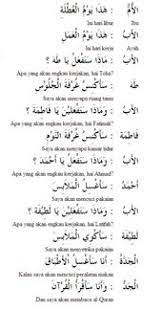 الأمّ : هَذَا يَوْمُ الْعُطْلَةِ
Ini hari libur Ibu
الأَبُ : هَذَا يَوْمُ الْعَمَلِ
Ini hari kerja Ayah
الأَبُ : مَاذَا سَتَفْعَلُ يَا طَهَ ؟
Apa yang akan engkau kerjakan, hai Toha?
طَهَ : سَأَكْنُسُ غُرْفَةَ الْجُلُوْسِ
Saya akan menyapu ruang tamu
الأَبُ : وَمَاذَا سَتَفْعَلِيْنَ يَا فَاطِمَةُ ؟
Apa yang akan engkau kerjakan, hai Fatimah?
فَاطِمَةُ : سَأَكْنُسُ غُرْفَةَ النَّوْمِ
Saya akan menyapu kamar tidur
الأَبُ : وَمَاذَا سَتَفْعَلُ يَا أَحْمَدُ ؟
Apa yang akan engkau kerjakan, hai Ahmad?
أَحْمَدُ : سَأَغْسِلُ الْمَلَابِسَ
Saya akan mencuci pakaian
الأَبُ : وَمَاذَا سَتَفْعَلِيْنَ يَا لَطِيْفَةُ ؟
Apa yang akan engkau kerjakan, hai Latifah?
لَطِيْفَةُ : سَأَكْوِي الْمَلَابِسَ
Saya akan menyetrika pakaian
الْجَدَّةُ : أَنَا سَأَغْسِلُ الْأَطْبَاقَ
Kalau saya akan mencuci peralatan makan
الْجَدُّ : وَأَنَا سَأَقْرَأُ الْقُرْآنَ
Dan saya akan membaca al-Quran